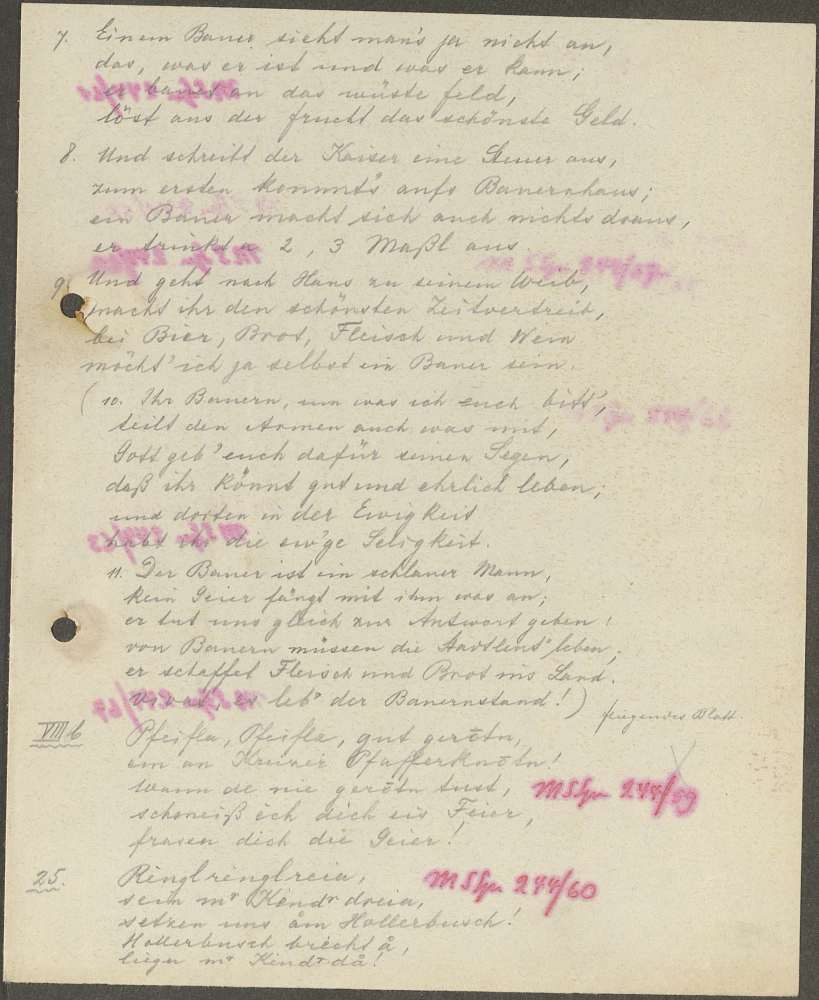 7. Einem Bauer sieht man's ja nicht an,
das, was er ist und was er kann;
er bauet an das wüste Feld,
löst aus der Frucht das schönste Geld.
8. Und schreibt der Kaiser eine Steuer aus,
zum ersten kommt's aufs Bauernhaus;
ein Bauer macht sich auch nichts draus,
er trinkt a 2, 3 Maßl aus.
9. Und geht nach Haus zu seinem Weib,
macht ihr den schönsten Zeitvertreib,
bei Bier, Brot, Fleisch und Wein
möcht' ich ja selbst ein Bauer sein.
(10. Ihr Bauern, um was ich euch bitt',
teilt den Armen auch was mit,
Gott geb' euch dafür seinen Segen,
daß ihr könnt gut und ehrlich leben;
und dorten in der Ewigkeit
habt ihr die ew'ge Seligkeit.
11. Der Bauer ist ein schlauer Mann,
kein Geier fängt mit ihm was an;
er tut uns gleich zur Antwort geben:
von Bauern müssen die Stadtleut' leben;
er schaffet Fleisch und Brot ins Land.
Vivat, es leb' der Bauernstand!)
fliegendes Blatt.
VIII b Pfeifla, Pfeifla, gut gerōtn,
um an Kreizer Pfafferknōtn!
Wann de nie gerōtn tust,
schmeiß ich dich eis Feier,
frasen dich die Geier!
MSgn 244/59
25. Ringlringlreia,
sein mr Kendr dreia,
setzen uns åm Hollerbusch!
Hollerbusch brecht å,
liegn mr Kendr då!
MSgn 244/60